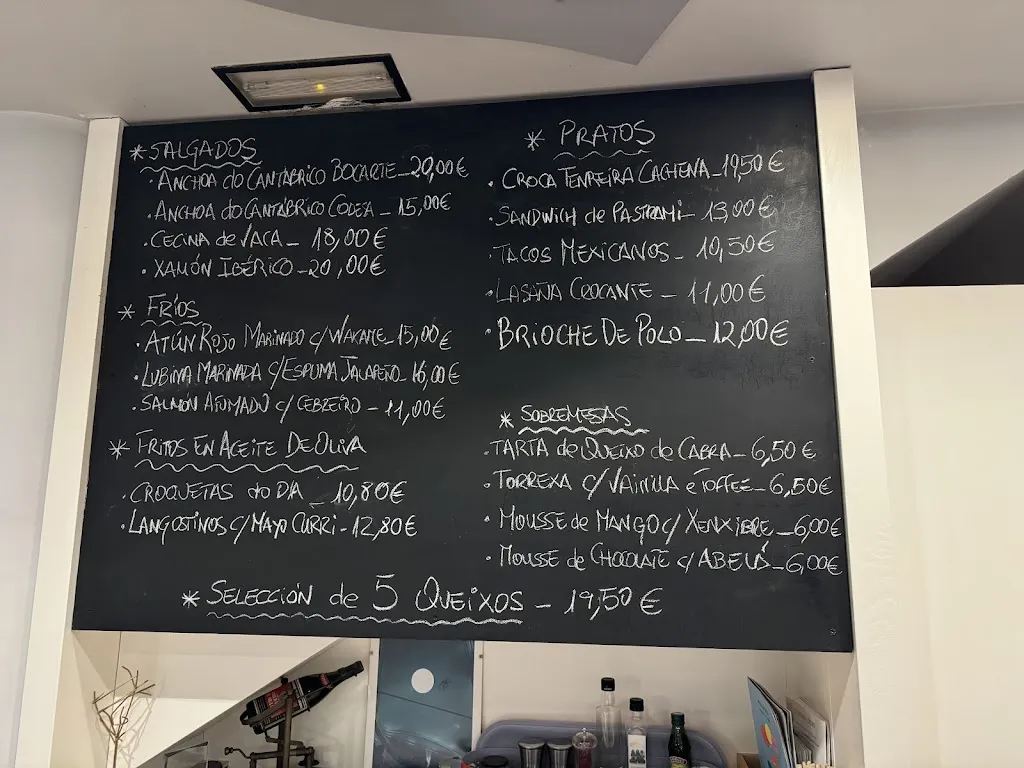 * SALGADOS
· ANCHOA do CANTÁBRICO BOCARTE - 20,00€
· ANCHOA do CANTÁBRICO CODESA - 15,00€
· CECINA de VACA - 18,00€
· XAMÓN IBÉRICO - 20,00€
* FRÍOS
· ATÚN ROJO MARINADO c/WAKAME - 15,00€
· LUBINA MARINADA c/ESPUMA JALAPEÑO - 16,00€
· SALMÓN AFUMADO c/ CEBREIRO - 11,00€
* FRITOS EN ACEITE DE OLIVA
· CROQUETAS do DÍA 10,80€
· LANGOSTINOS c/MAYO CURRI - 12,80€
* PRATOS
· CROCA TENREIRA CACHENA - 19,50€
· SANDWICH de PASTRAMI - 13,00€
· TACOS MEXICANOS - 10,50€
· LASAÑA CROCANTE - 11,00€
· BRIOCHE DE POLO - 12,00€
* SOBREMESAS
· TARTA de QUEIXO de CABRA - 6,50€
· TORREXA c/ VAINILLA e TOFFEE - 6,50€
· MOUSSE de MANGO c/ XENXIBRE - 6,00€
· MOUSSE de CHOCOLATE c/ ABELÁ - 6,00€
* SELECCIÓN de 5 QUEIXOS - 19,50€